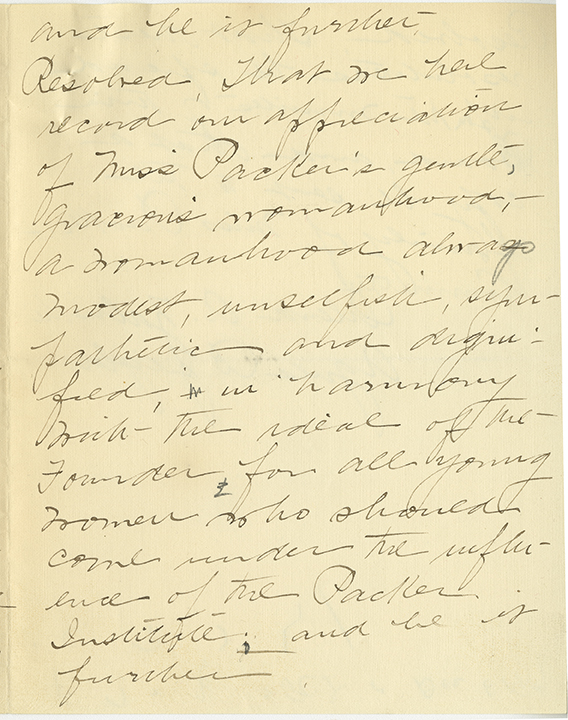 and be it further,
Resolved, That we here
record our appreciation
of Miss Packer's gentle,
gracious womanhood,—
a womanhood always
modest, unselfish, sym-
pathetic and digni-
fied, in harmony
with the ideal of the
Founder for all young
women who should
come under the influ-
ence of the Packer
Institute; and be it
further